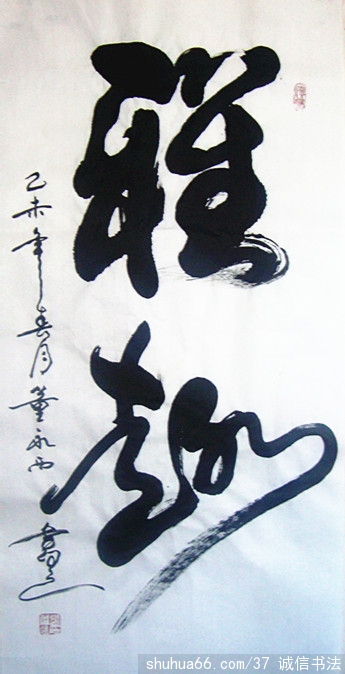 雅趣
乙未年春月董永西书
shuhua66.com/37 诚信书法